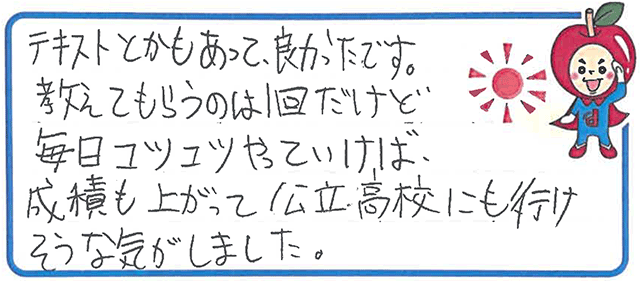 テキストとかもあって、良かったです。
教えてもらうのは1回だけど
毎日コツコツやっていけば、
成績も上がって公立高校にも行け
そうな気がしました。